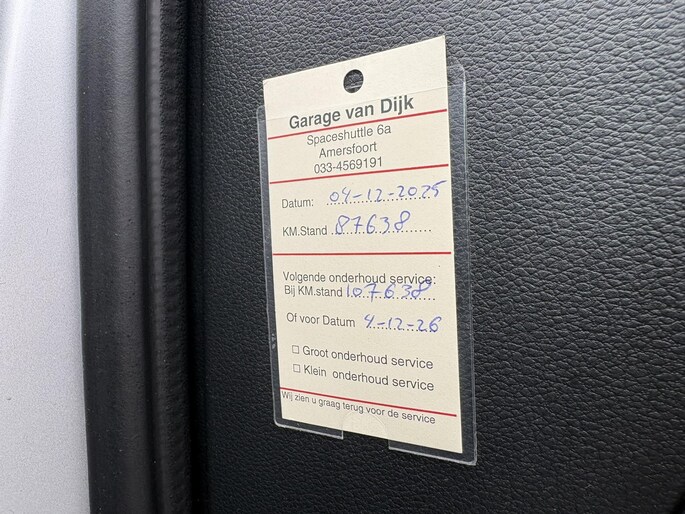 Garage van Dijk
Spaceshuttle 6a
Amersfoort
033-4569191
Datum: 04-12-2025
KM.Stand 87638
Volgende onderhoud service:
Bij KM.stand 107638
Of voor Datum 4-12-26
☐ Groot onderhoud service
☐ Klein onderhoud service
Wij zien u graag terug voor de service